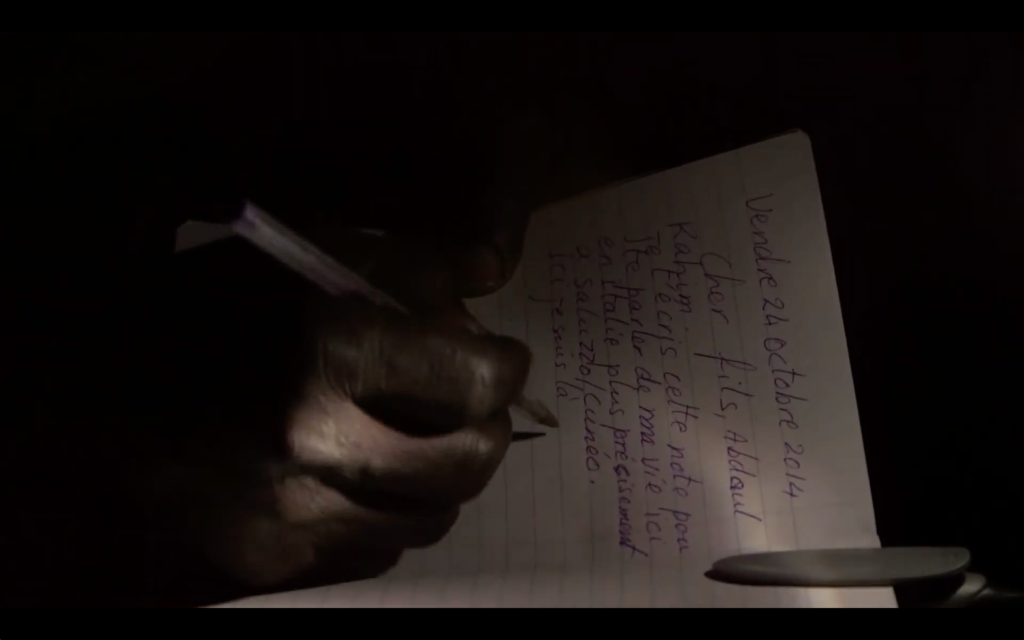 Vendre 24 octobre 2014
Cher fils, Abdoul
Rahim.
Je t'écris cette note pou
te parler de ma vie ici
en italie plus précisement
a saluzzo/cuneo.
ici je suis là